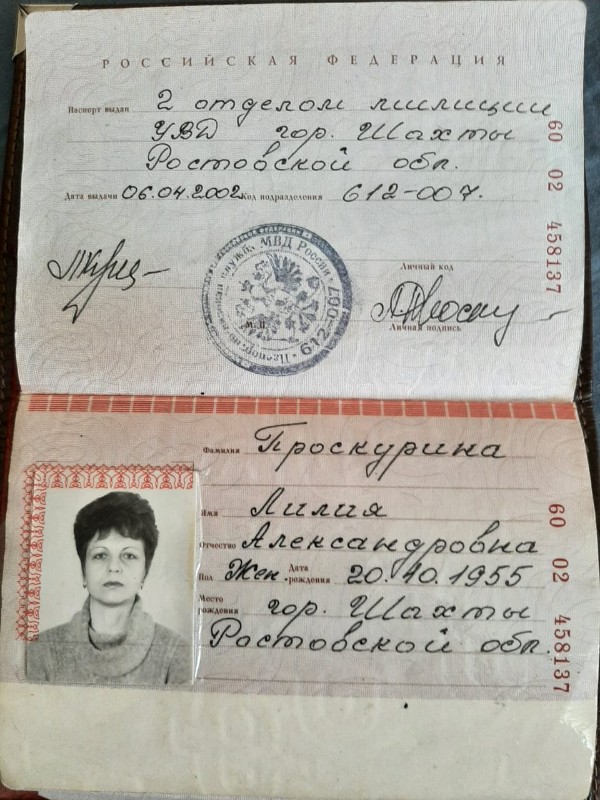 РОССИЙСКАЯ ФЕДЕРАЦИЯ
Паспорт выдан 2 отделом милиции
УВД гор. Шахты
Ростовской обл.
Дата выдачи 06.04.2002 Код подразделения 612-007.
60 02 458137
Личный код
Личная подпись
М.П.
МВД России
612-007
Фамилия Проскурина
Имя Лилия
Отчество Александровна
Пол Жен. Дата рождения 20.10.1955
Место рождения гор. Шахты
Ростовской обл.
60 02 458137